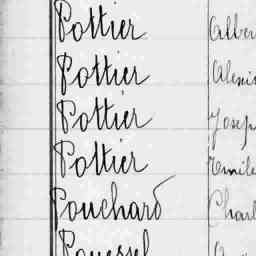 Pottier Alber
Pottier Alexis
Pottier Josep
Pottier Emile
Pouchard Charl
Pouessel